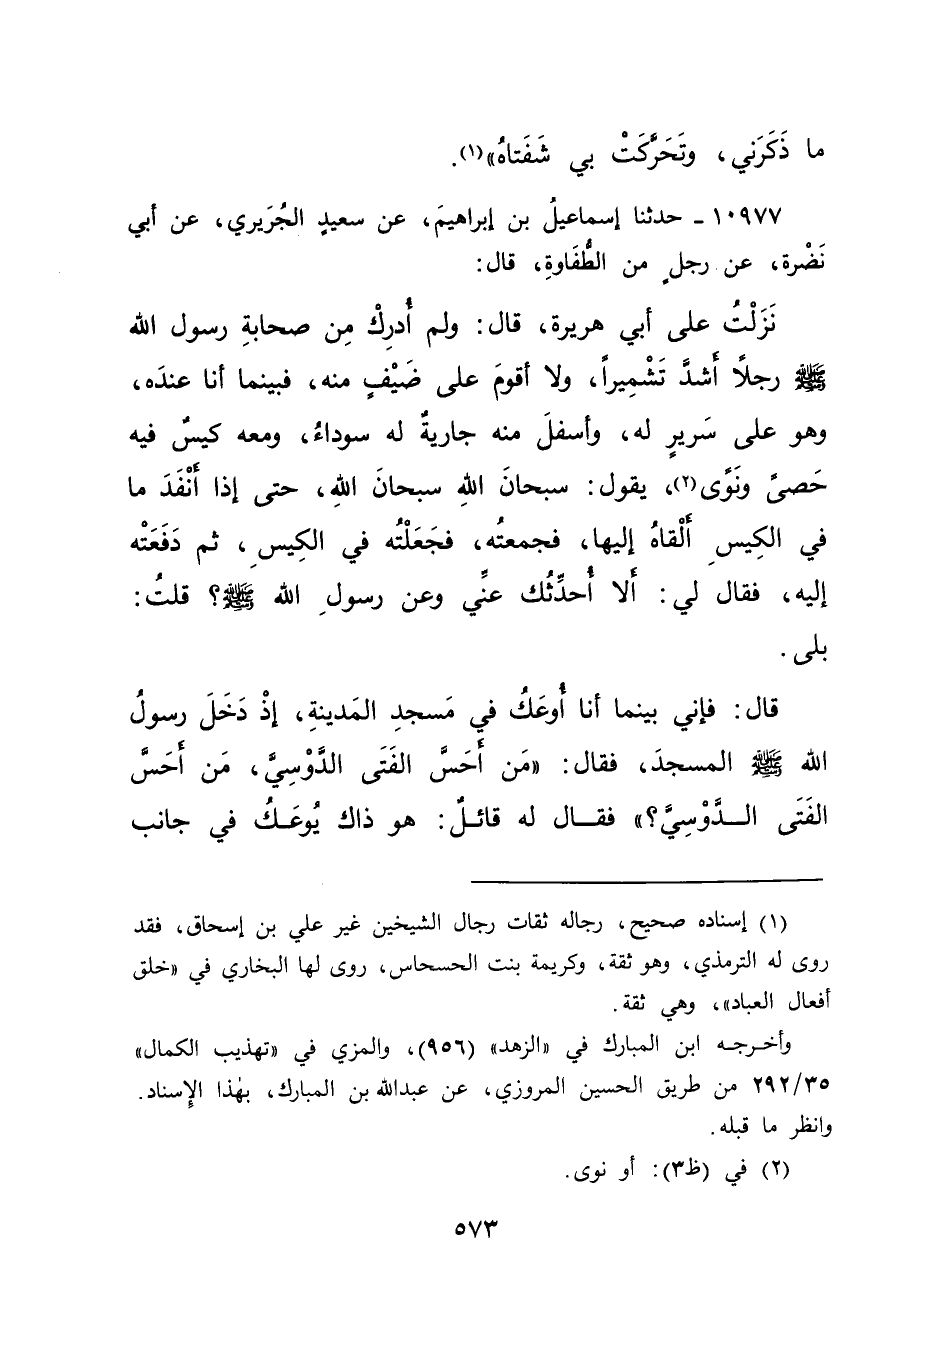 ما ذَكَرَني، وتَحَرَّكَتْ بي شَفَتاهُ»(١).
١٠٩٧٧ ـ حدثنا إسماعيلُ بن إبراهيمَ، عن سعيدٍ الجُرَيري، عن أبي
نَضْرة، عن رجلٍ من الطُّفَاوةِ، قال:
نَزَلْتُ على أبي هريرة، قال: ولم أُدرِكْ مِن صحابةِ رسول الله
ﷺ رجلًا أَشدَّ تَشْمِيراً، ولا أقومَ على ضَيْفٍ منه، فبينما أنا عندَه،
وهو على سَريرٍ له، وأسفلَ منه جاريةٌ له سوداءُ، ومعه كيسٌ فيه
حَصىً ونَوًى(٢)، يقول: سبحانَ اللهِ سبحانَ اللهِ، حتى إذا أَنْفَدَ ما
في الكِيسِ أَلْقاهُ إليها، فجمعتُه، فجَعَلَتْه في الكِيسِ، ثم دَفَعَتْه
إليه، فقال لي: أَلا أُحدِّثُك عنِّي وعن رسولِ الله ﷺ؟ قلتُ:
بلى.
قال: فإني بينما أنا أُوعَكُ في مَسجدِ المَدينةِ، إذْ دَخَلَ رسولُ
الله ﷺ المسجدَ، فقال: «مَن أَحَسَّ الفَتَى الدَّوْسِيَّ، مَن أَحَسَّ
الفَتَى الـدَّوْسِيَّ؟» فقـال له قائـلٌ: هو ذاك يُوعَـكُ في جانب
(١) إسناده صحيح، رجاله ثقات رجال الشيخين غير علي بن إسحاق، فقد
روى له الترمذي، وهو ثقة، وكريمة بنت الحسحاس، روى لها البخاري في «خلق
أفعال العباد»، وهي ثقة.
وأخـرجـه ابن المبارك في «الزهد» (٩٥٦)، والمزي في «تهذيب الكمال»
٢٩٢/٣٥ من طريق الحسين المروزي، عن عبدالله بن المبارك، بهٰذا الإسناد.
وانظر ما قبله.
(٢) في (ظ٣): أو نوى.
٥٧٣